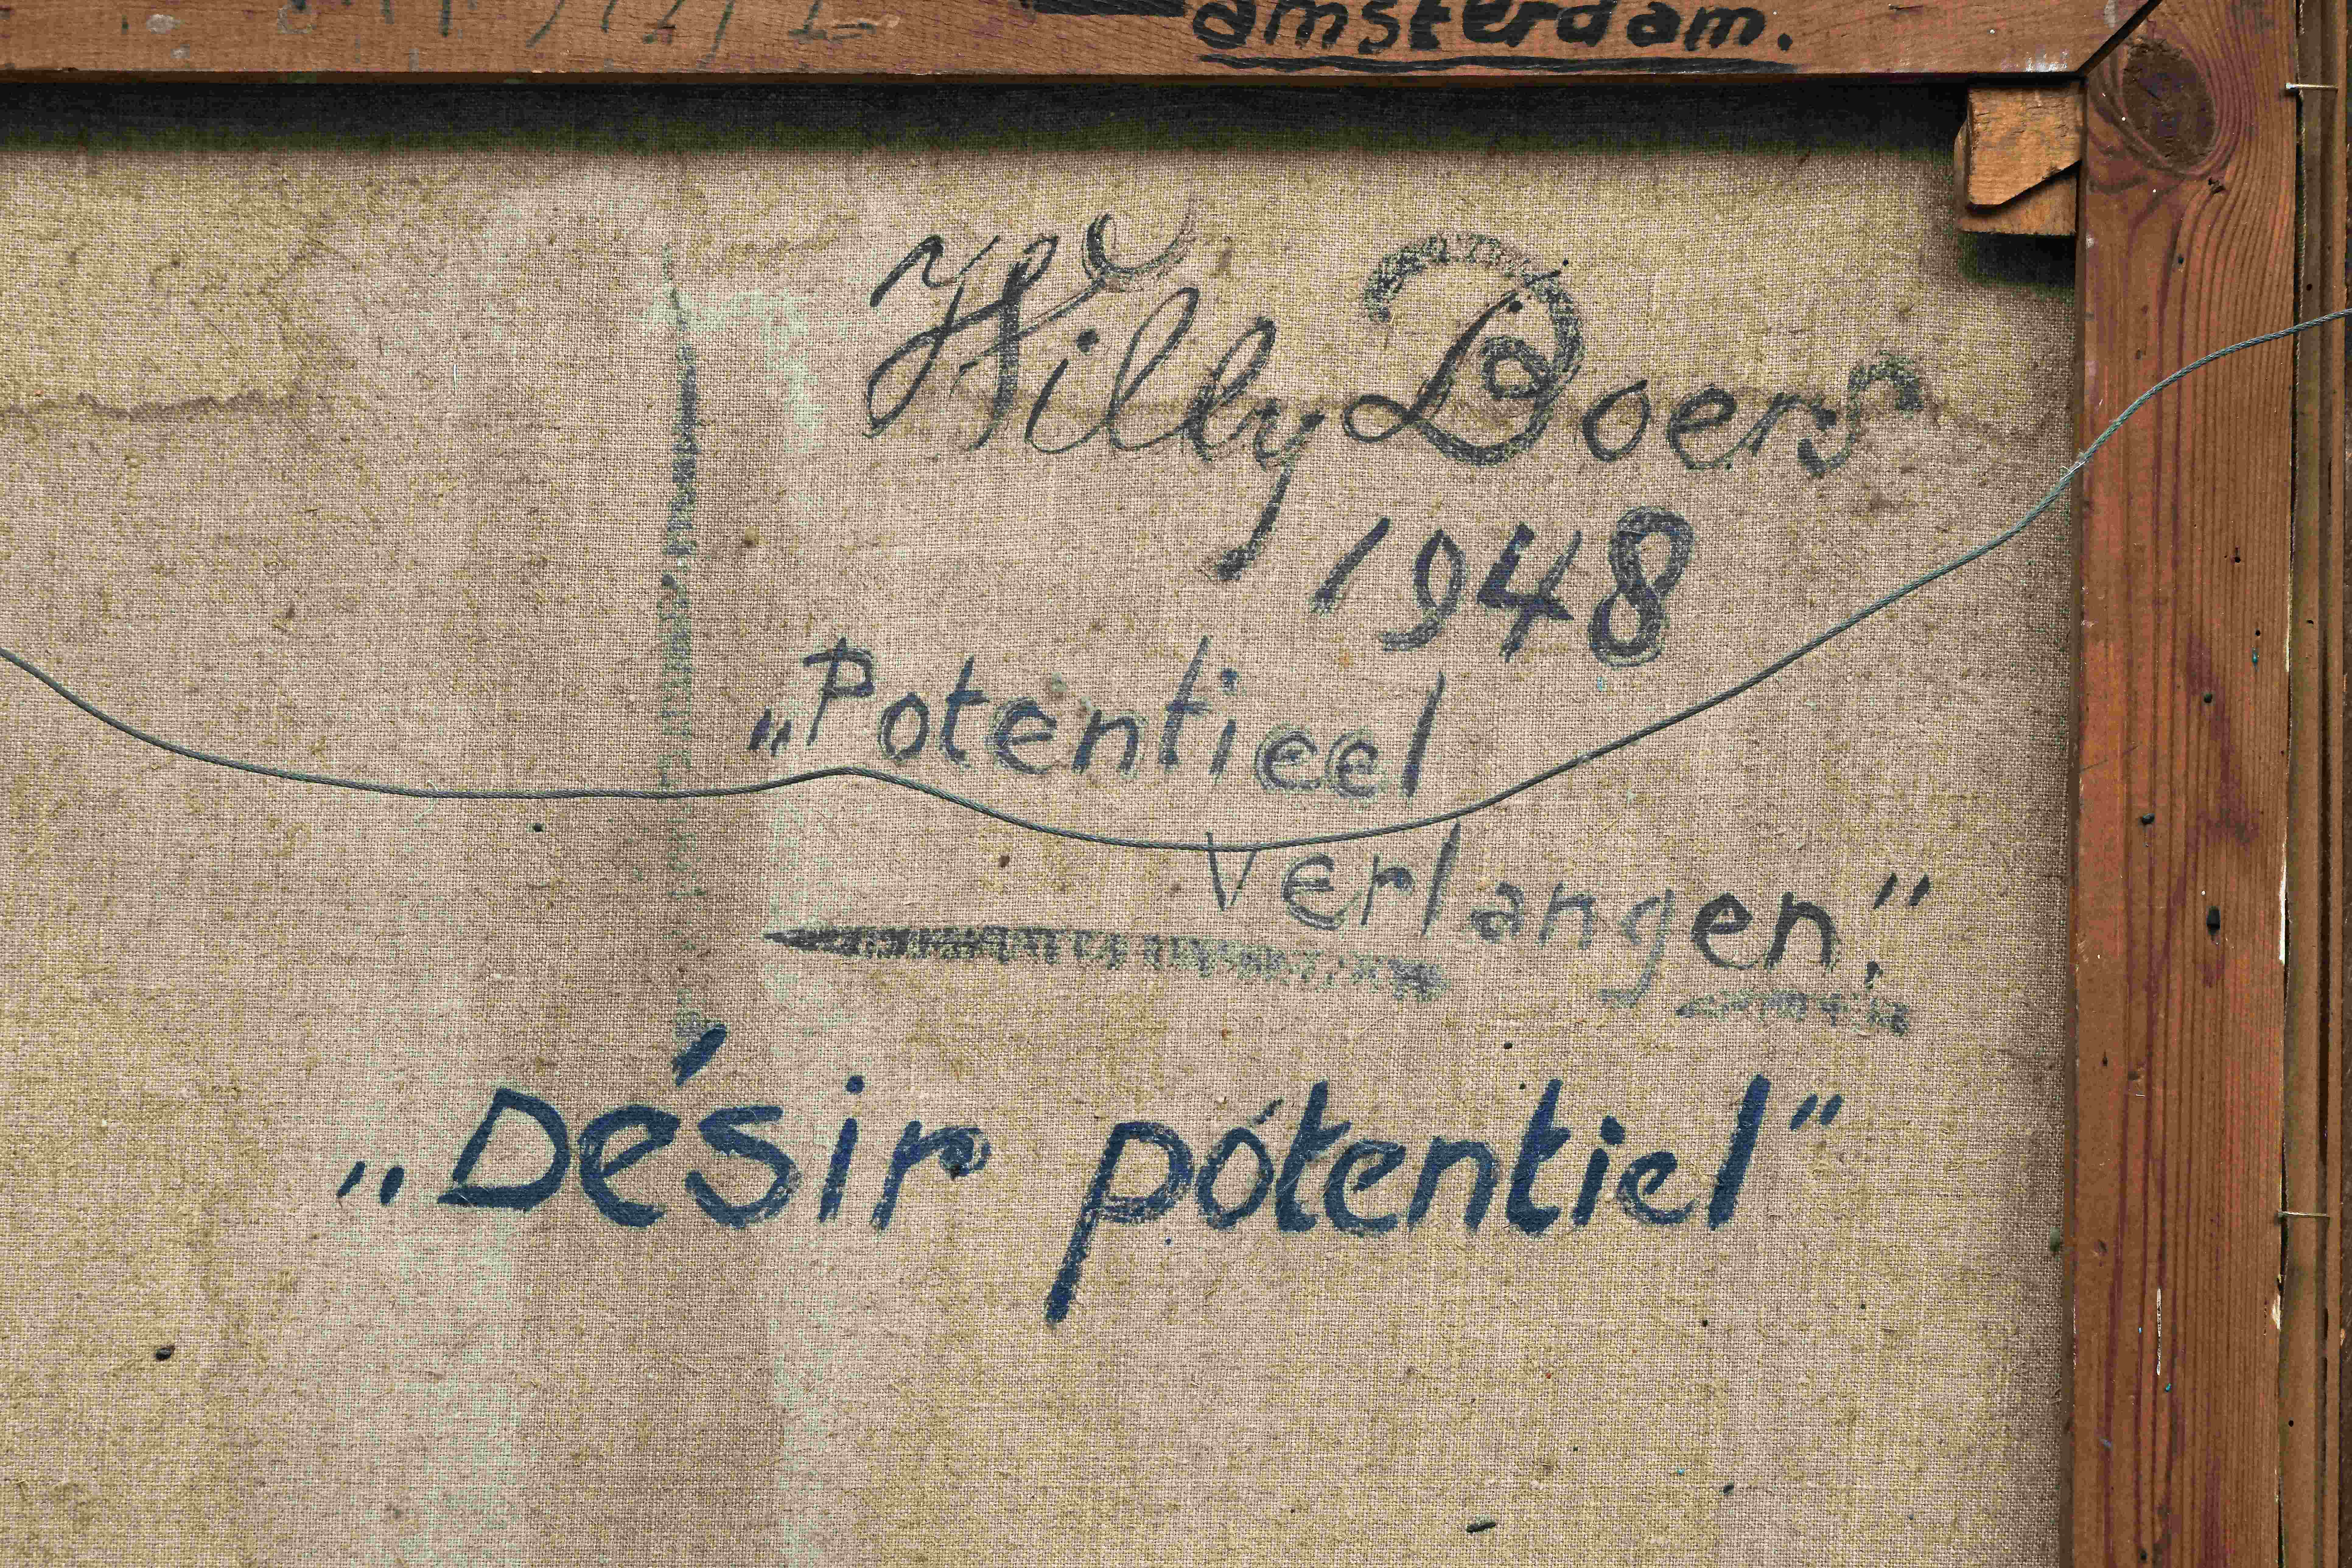 amsterdam.
Willy Boers
1948
„Potentieel
verlangen."
„Désir pótentiel"